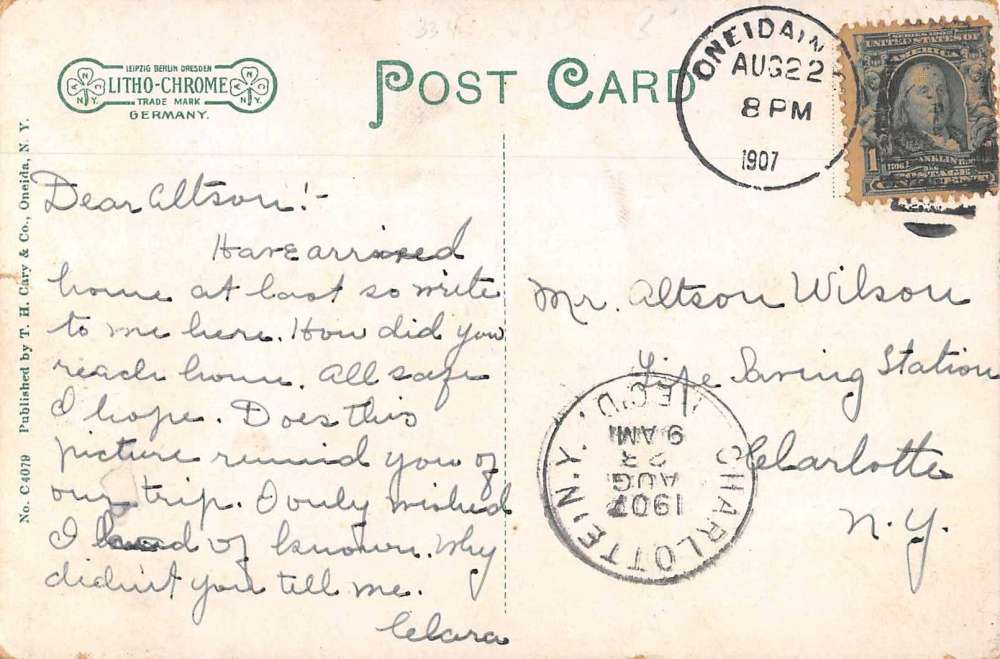 LEIPZIG BERLIN DRESDEN
LITHO-CHROME
TRADE MARK
GERMANY.
POST CARD
ONEIDA, N
AUG 22
8 PM
1907
SERIES 1902
UNITED STATES OF
AMERICA
1
FRANKLIN
POSTAGE
ONE CENT
No. C 4079 Published by T. H. Cary & Co., Oneida, N. Y.
Dear Altson!-
Have arrived
home at last so write
to me here. How did you
reach home. All safe
I hope. Does this
picture remind you of
our trip. I only wished
I had of known. Why
didn't you tell me.
Clara
Mr. Altson Wilson
Life Saving Station
Charlotte
N.Y.
CHARLOTTE N.Y.
REC'D.
9 AM
23
AUG
1907
334